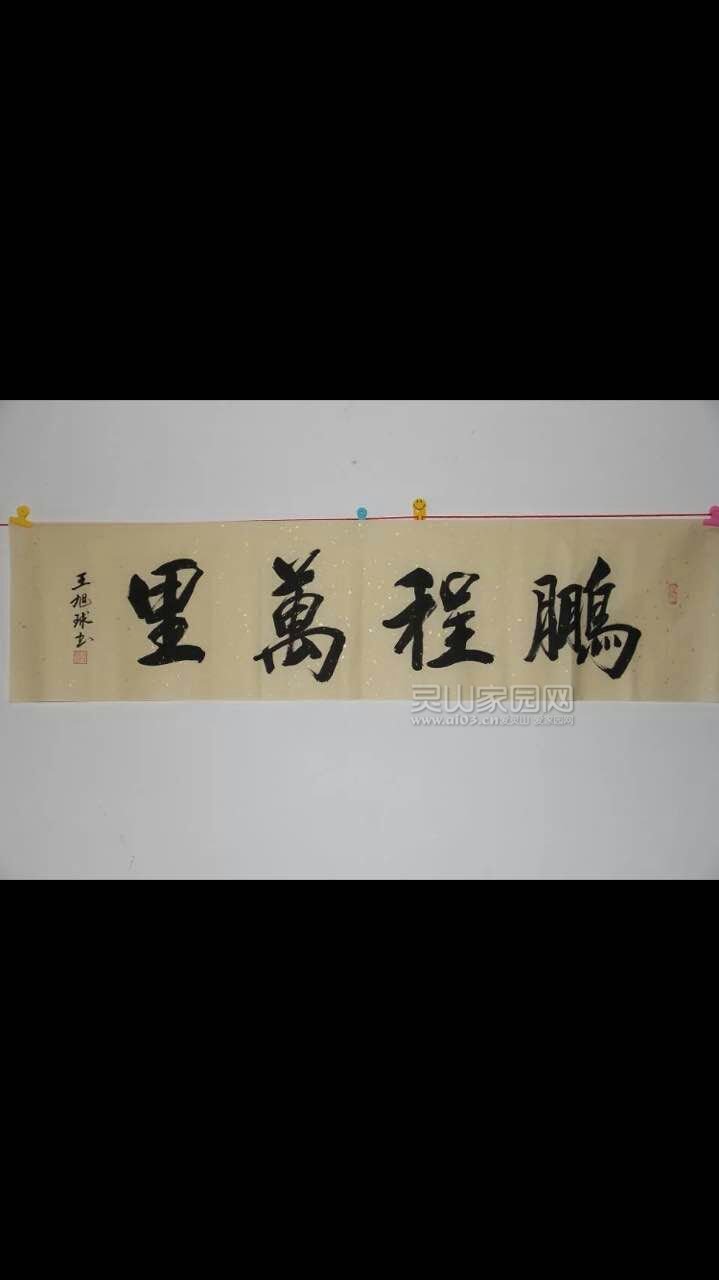 鵬程萬里
王旭球书
灵山家园网
www.al03.cn爱灵山 爱家园网